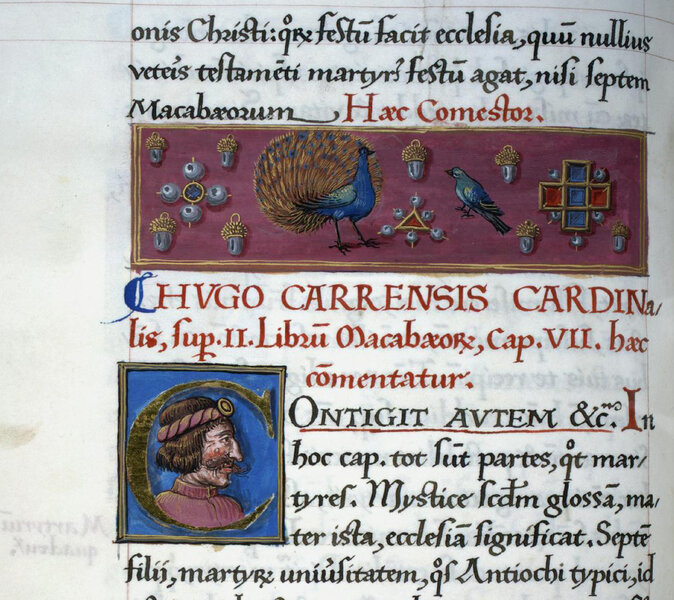 onis Christi: qꝛ̄ festū facit ecclesia, quū nullius
veteis testamēti martyrꝭ festū agat, nisi septem
Macabæorum Hæc Comestor.
HVGO CARRENSIS CARDINa/
lis, sup. II. Librū Macabæoꝝ, Cap. VII. hæc
cōmentatur.
CONTIGIT AVTEM &c. In
hoc cap. tot sūt partes, qͦt mar/
tyres. Mystice scdm̄ glossā, ma/
ter ista, ecclesiā significat. Septē
filii, martyꝝ uniūsitatem, qͦs Antiochi typici, id